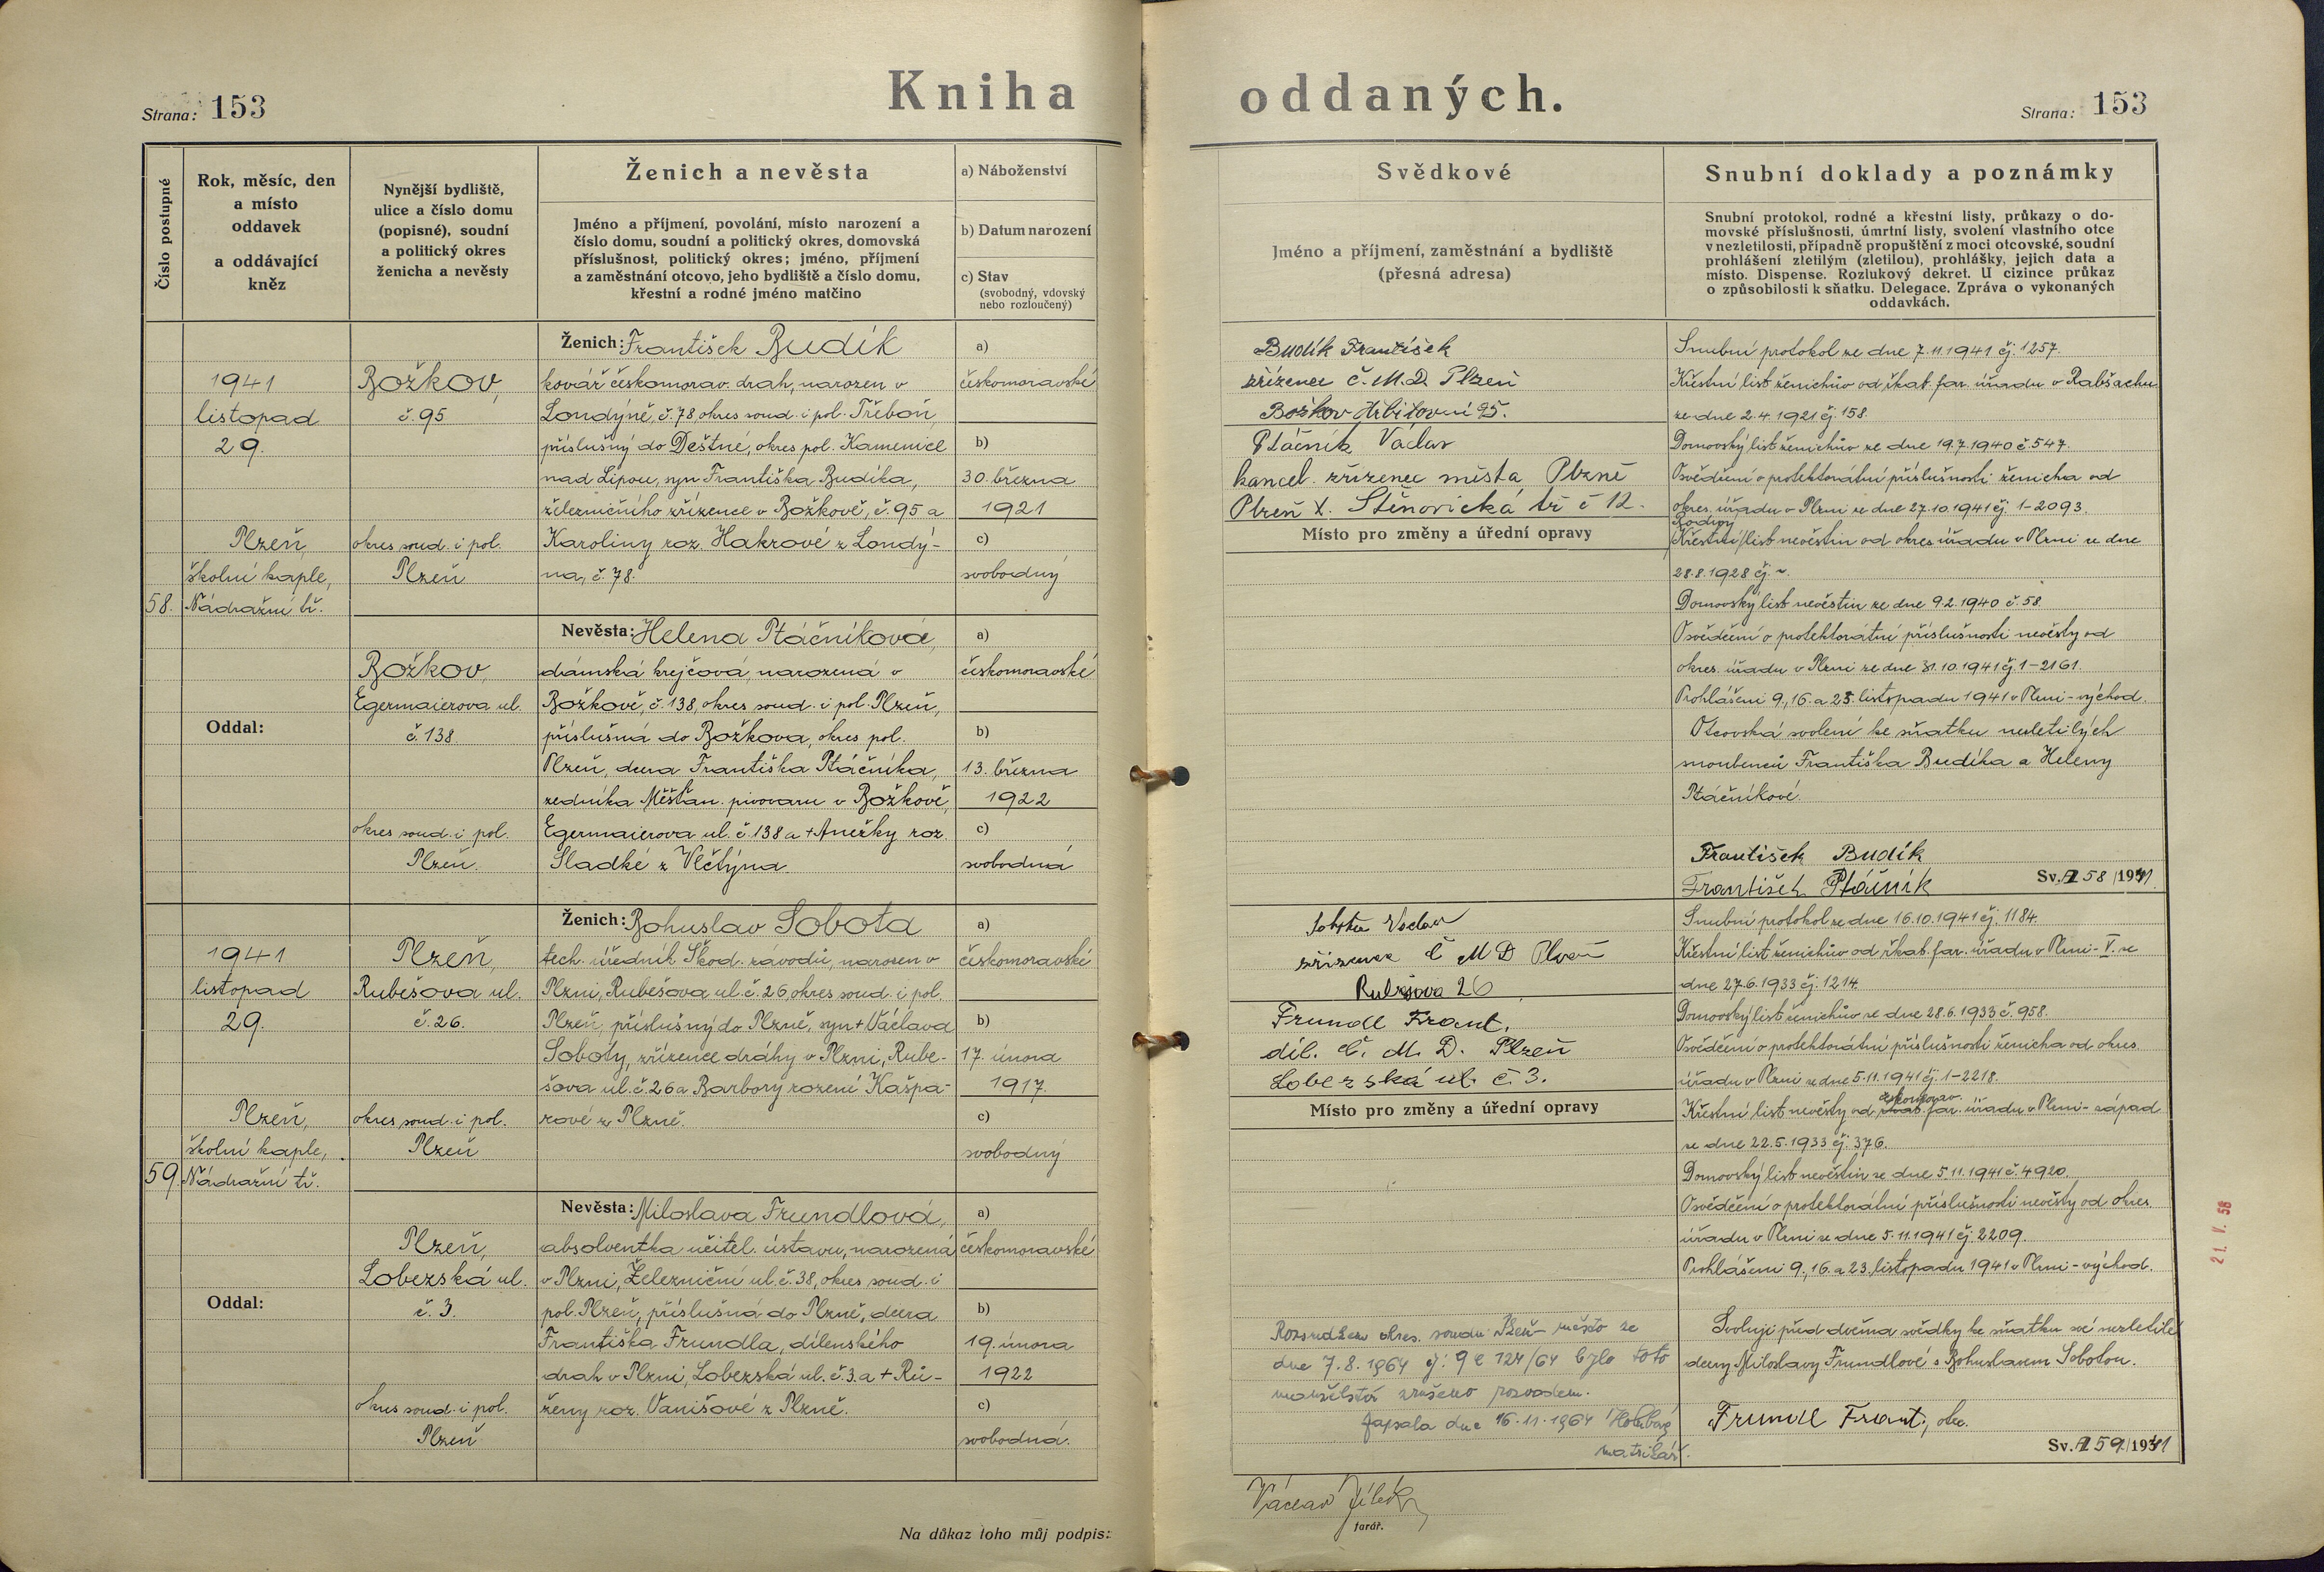 Kniha oddaných.
Strana: 153
Strana: 153
Číslo postupné
Rok, měsíc, den
a místo
oddavek
a oddávající
kněz
Nynější bydliště,
ulice a číslo domu
(popisné), soudní
a politický okres
ženicha a nevěsty
Ženich a nevěsta
Jméno a příjmení, povolání, místo narození a
číslo domu, soudní a politický okres, domovská
příslušnost, politický okres; jméno, příjmení
a zaměstnání otcovo, jeho bydliště a číslo domu,
křestní a rodné jméno matčino
a) Náboženství
b) Datum narození
c) Stav
(svobodný, vdovský
nebo rozloučený)
Svědkové
Jméno a příjmení, zaměstnání a bydliště
(přesná adresa)
Snubní doklady a poznámky
Snubní protokol, rodné a křestní listy, průkazy o do-
movské příslušnosti, úmrtní listy, svolení vlastního otce
v nezletilosti, případně propuštění z moci otcovské, soudní
prohlášení zletilým (zletilou), prohlášky, jejich data a
místo. Dispense. Rozlukový dekret. U cizince průkaz
o způsobilosti k sňatku. Delegace. Zpráva o vykonaných
oddavkách.
58.
1941
listopad
29.
Plzeň,
školní kaple,
Nádražní tř.
Oddal:
Božkov,
č. 95
okres soud. i pol.
Plzeň
Ženich: František Budík
kovář českomorav. drah, narozen v
Londýně, č. 78 okres soud. i pol. Třeboň,
příslušný do Deštné, okres pol. Kamenice
nad Lipou, syn Františka Budíka,
železničního zřízence v Božkově, č. 95 a
Karoliny roz. Hakrové z Londý-
na, č. 78.
a)
českomoravské
b)
30. března
1921
c)
svobodný
Božkov,
Egermaierova ul.
č. 138
okres soud. i pol.
Plzeň.
Nevěsta: Helena Ptáčníková,
dámská krejčová, narozená v
Božkově, č. 138, okres soud. i pol. Plzeň,
příslušná do Božkova, okres pol.
Plzeň, dcera Františka Ptáčníka,
zedníka Měšťan. pivovaru v Božkově,
Egermaierova ul. č. 138 a + Anežky roz.
Sladké z Vlčtýna.
a)
českomoravské
b)
13. března
1922
c)
svobodná
Budík František
zřízenec Č. M. D. Plzeň
Božkov Hřbitovní 95.
Ptáčník Václav
kancel. zřízenec města Plzně
Plzeň X. Stěnovická tř č 12.
Místo pro změny a úřední opravy
Snubní protokol ze dne 7.11.1941 čj. 1257.
Křestní list ženichův od řkat. far. úřadu v Rabšachu
ze dne 2.4.1921 čj. 158.
Domovský list ženichův ze dne 19.7.1940 č. 547.
Osvědčení o protektorátní příslušnosti ženicha od
okres. úřadu v Plzni ze dne 27.10.1941 čj. 1-2093.
Rodný
Křestní list nevěstin od okres úřadu v Plzni ze dne
28.8.1928 čj. ~.
Domovský list nevěstin ze dne 9.2.1940 č. 58.
Osvědčení o protektorátní příslušnosti nevěsty od
okres. úřadu v Plzni ze dne 31.10.1941 čj. 1-2161.
Prohlášeni 9., 16. a 23. listopadu 1941 v Plzni-východ.
Otcovská svolení ke sňatku nezletilých
snoubenců Františka Budíka a Heleny
Ptáčníkové.
František Budík
František Ptáčník
Sv. A 58/1941
59.
1941
listopad
29.
Plzeň,
školní kaple,
Nádražní tř.
Oddal:
Plzeň,
Rubešova ul.
č. 26.
okres soud. i pol.
Plzeň
Ženich: Bohuslav Sobota
tech. úředník Škod. závodů, narozen v
Plzni, Rubešova ul. č. 26, okres soud. i pol.
Plzeň, příslušný do Plzně, syn + Václava
Soboty, zřízence dráhy v Plzni, Rube-
šova ul. č 26 a Barbory rozené Kašpa-
rové z Plzně.
a)
českomoravské
b)
17. února
1917.
c)
svobodný
Plzeň,
Lobezská ul.
č. 3.
okres soud. i pol.
Plzeň
Nevěsta: Miloslava Frundlová,
absolventka učitel. ústavu, narozená
v Plzni, Železniční ul. č. 38, okres soud. i
pol. Plzeň, příslušná do Plzně, dcera
Františka Frundla, dílenského
drah v Plzni, Lobezská ul. č. 3. a + Rů-
ženy roz. Vanišové z Plzně.
a)
českomoravské
b)
19. února
1922
c)
svobodná.
Sobota Václav
zřízenec Č M D Plzeň
Rubešova 26
Frundl Frant.
díl. Č. M. D. Plzeň
Lobezská ul. č. 3.
Místo pro změny a úřední opravy
Rozsudkem okres. soudu Plzeň-město ze
dne 7.8.1964 čj: 9 C 124/64 bylo toto
manželství zrušeno rozvodem.
Zapsala dne 16.11.1964
matrikář.
Snubní protokol ze dne 16.10.1941 čj. 1184.
Křestní list ženichův od řkat. far. úřadu v Plzni-V. ze
dne 27.6.1933 čj. 1214.
Domovský list ženichův ze dne 28.6.1933 č. 958.
Osvědčení o protektorátní příslušnosti ženicha od okres.
úřadu v Plzni ze dne 5.11.1941 čj. 1-2218.
českomorav.
Křestní list nevěsty od řkat. far. úřadu v Plzni-západ
ze dne 22.5.1933 čj. 376.
Domovský list nevěstin ze dne 5.11.1941 č. 4920.
Osvědčení o protektorátní příslušnosti nevěsty od okres.
úřadu v Plzni ze dne 5.11.1941 čj. 2209.
Prohlášeni 9., 16. a 23. listopadu 1941 v Plzni-východ.
Svoluji před dvěma svědky ke sňatku své nezletilé
dcery Miloslavy Frundlové s Bohuslavem Sobotou.
Frundl Frant., otec.
Sv. A 59/1941
21. V. 58
Na důkaz toho můj podpis:
Václav Jílek
farář.